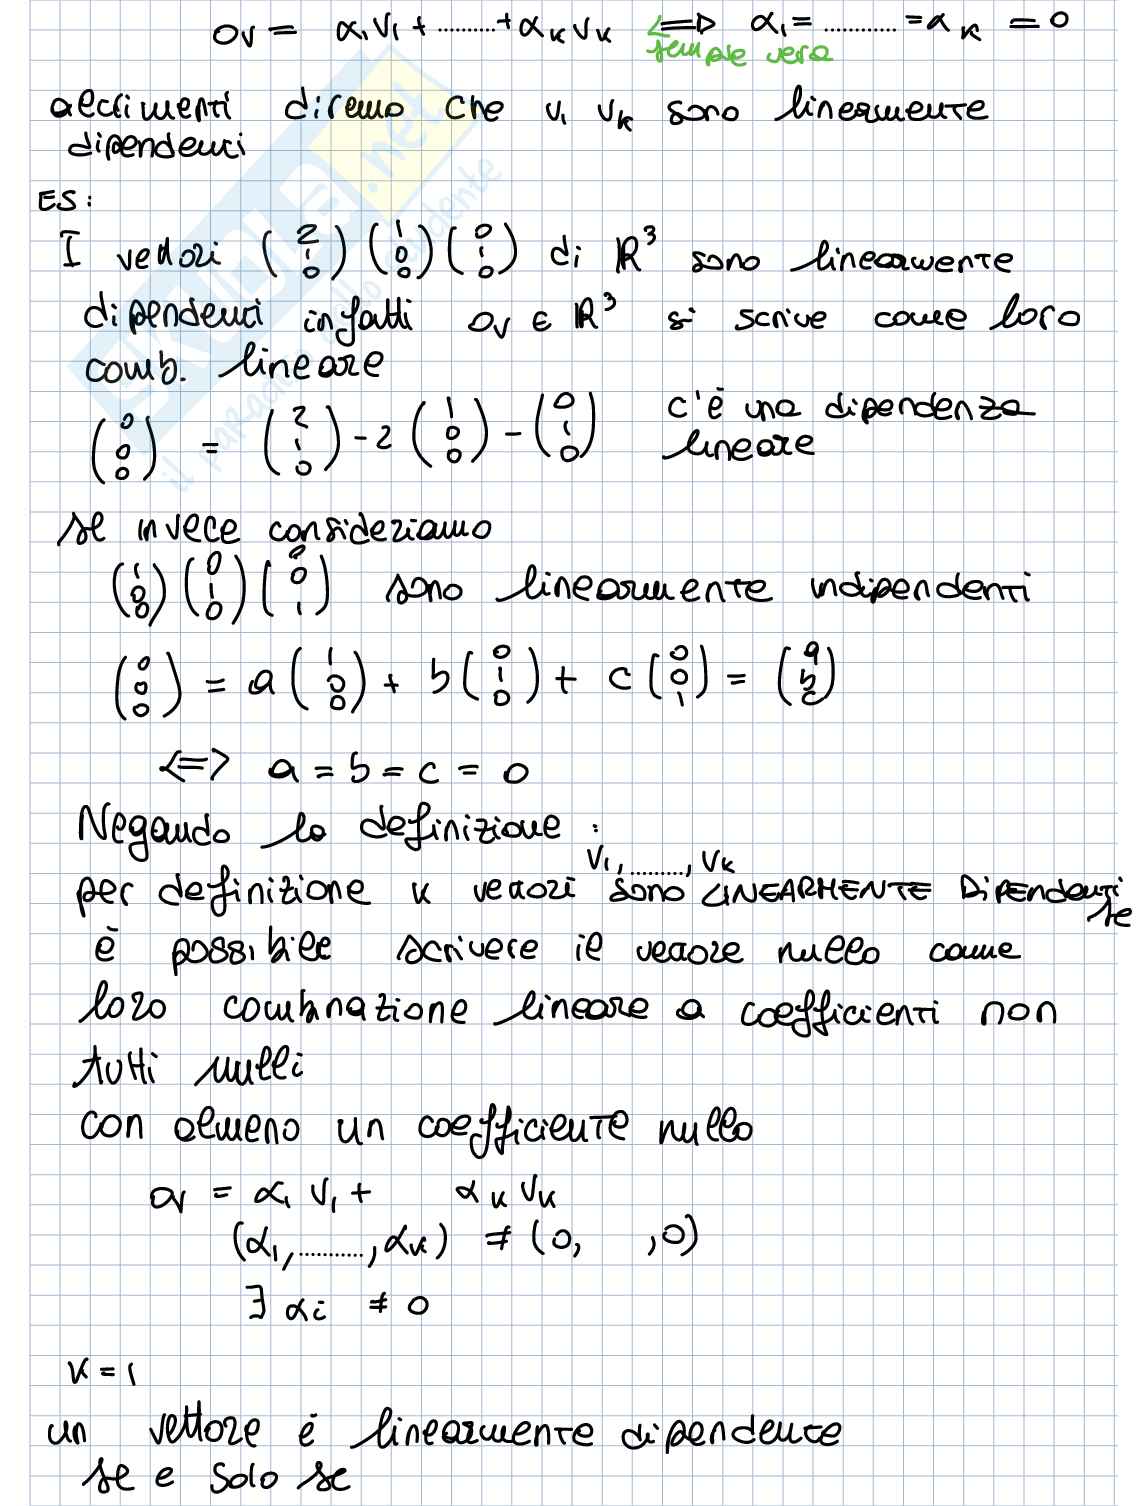 0v = α₁v₁ + .......... + αₖvₖ ⟺ α₁ = ............ = αₖ = 0
sempre vera
altrimenti diremo che v₁ vₖ sono linearmente
dipendenti
ES:
I vettori (2 1 0) (1 0 0) (0 1 0) di ℝ³ sono linearmente
dipendenti infatti 0v ∈ ℝ³ si scrive come loro
comb. lineare
(0 0 0) = (2 1 0) - 2 (1 0 0) - (0 1 0) c'è una dipendenza
lineare
se invece consideriamo
(1 0 0) (0 1 0) (0 0 1) sono linearmente indipendenti
(0 0 0) = a (1 0 0) + b (0 1 0) + c (0 0 1) = (a b c)
<=> a = b = c = 0
Negando la definizione :
v₁, .........., vₖ
per definizione k vettori sono LINEARMENTE Dipendenti se
è possibile scrivere il vettore nullo come
loro combinazione lineare a coefficienti non
tutti nulli
con almeno un coefficiente nullo
0v = α₁ v₁ + αₖ vₖ
(α₁, ..........., αₖ) ≠ (0, ,0)
∃ αi ≠ 0
k = 1
un vettore è linearmente dipendente
se e solo se
SKUOLA.net